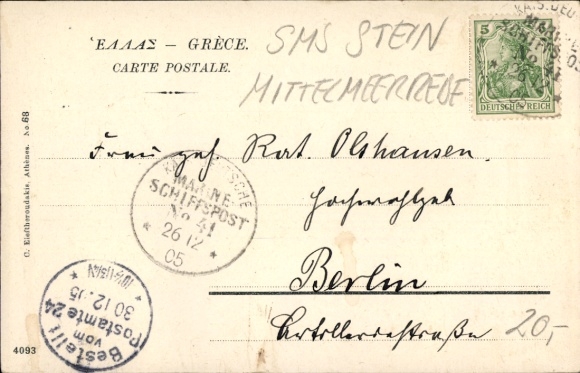 ἙΛΛΑΣ – GRÈCE.
CARTE POSTALE.
SMS STEIN
MITTELMEERREDE
5
DEUTSCHES REICH
MARINE-
SCHIFFSPOST
No 41
Frau geh. Rat. Olshausen.
Hochwohlgeb
Berlin
Artilleriestraße
20,-
DEUTSCHE
MARINE-
SCHIFFSPOST
No 41
* 26 12 *
05
Bestellt
vom
Postamte 24
30 12. 05
C. Eleftheroudakis, Athènes. No. 68
4093